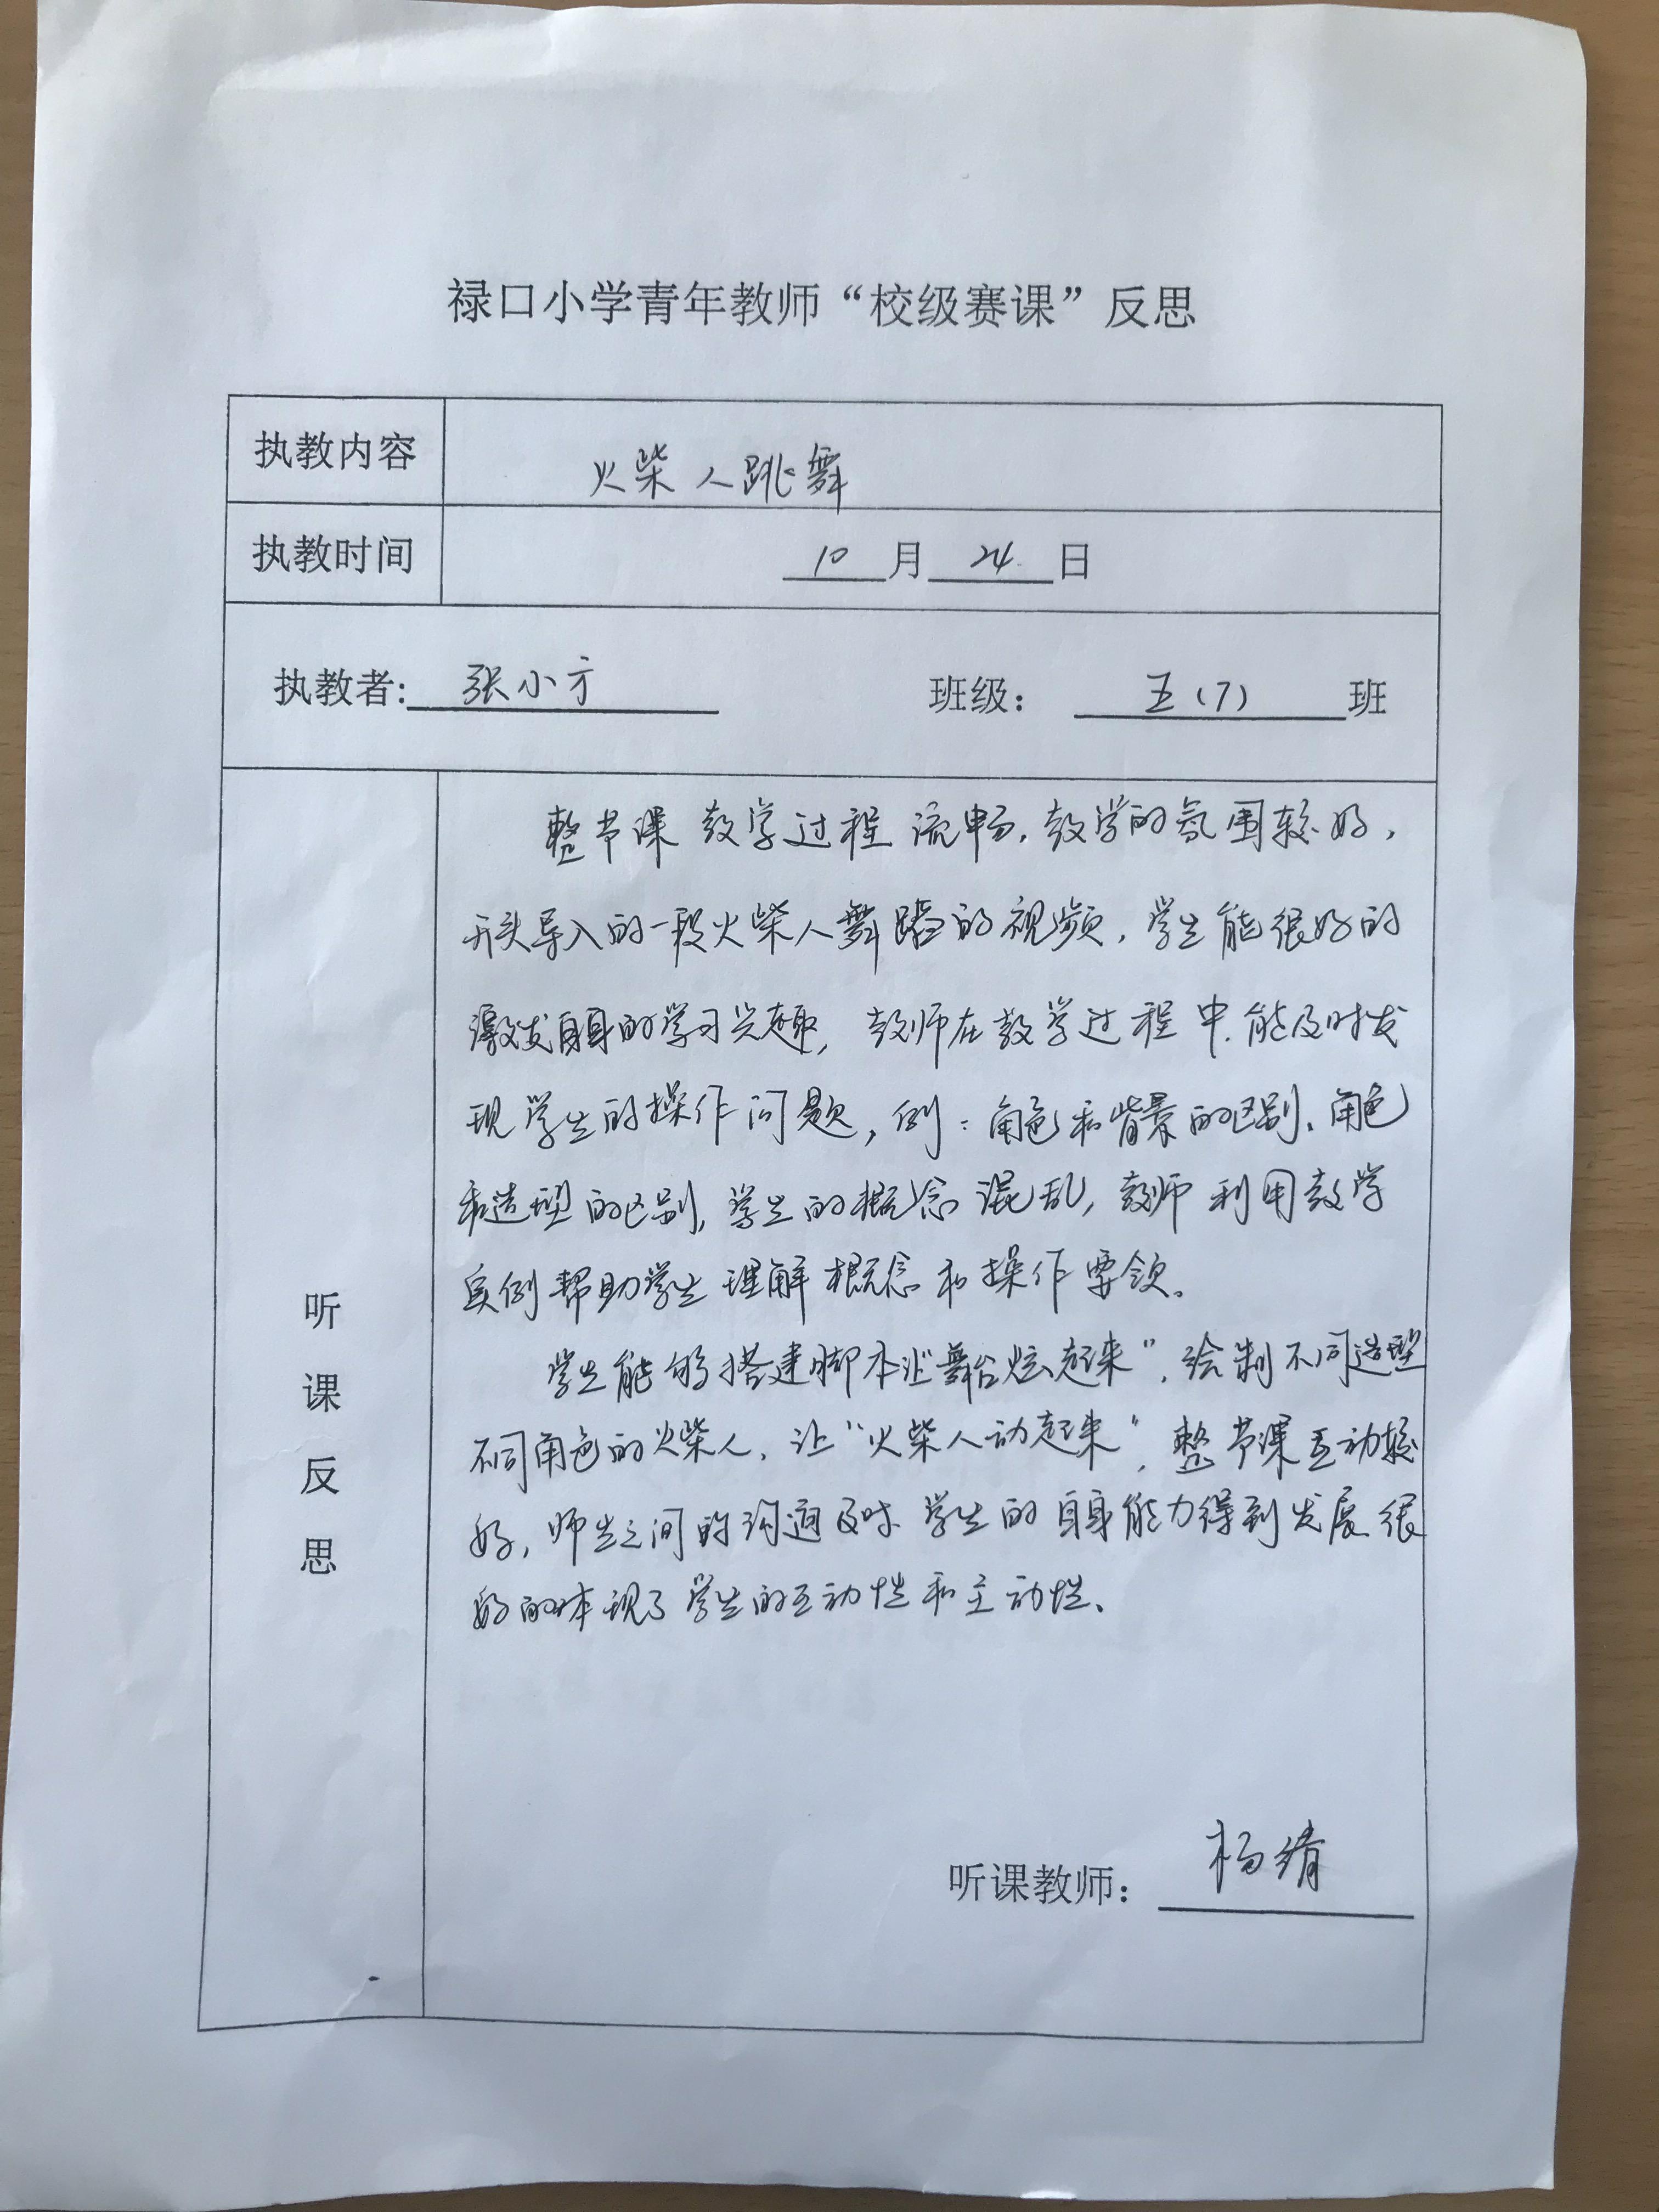 禄口小学青年教师“校级赛课”反思
执教内容 火柴人跳舞
执教时间 10月24日
执教者: 张小方 班级: 五(7)班
听课反思
整节课教学过程流畅,教学的氛围较好,
开头导入的一段火柴人舞蹈的视频,学生能很好的
激发自身的学习兴趣,教师在教学过程中,能及时发
现学生的操作问题,例:角色和背景的区别、角色
和造型的区别,学生的概念混乱,教师利用教学
实例帮助学生理解概念和操作要领。
学生能够搭建脚本让“舞台炫起来”,绘制不同造型
不同角色的火柴人,让“火柴人动起来”,整节课互动较
好,师生之间的沟通及时,学生的自身能力得到发展,很
好的体现了学生的互动性和主动性、
听课教师: 杨绪